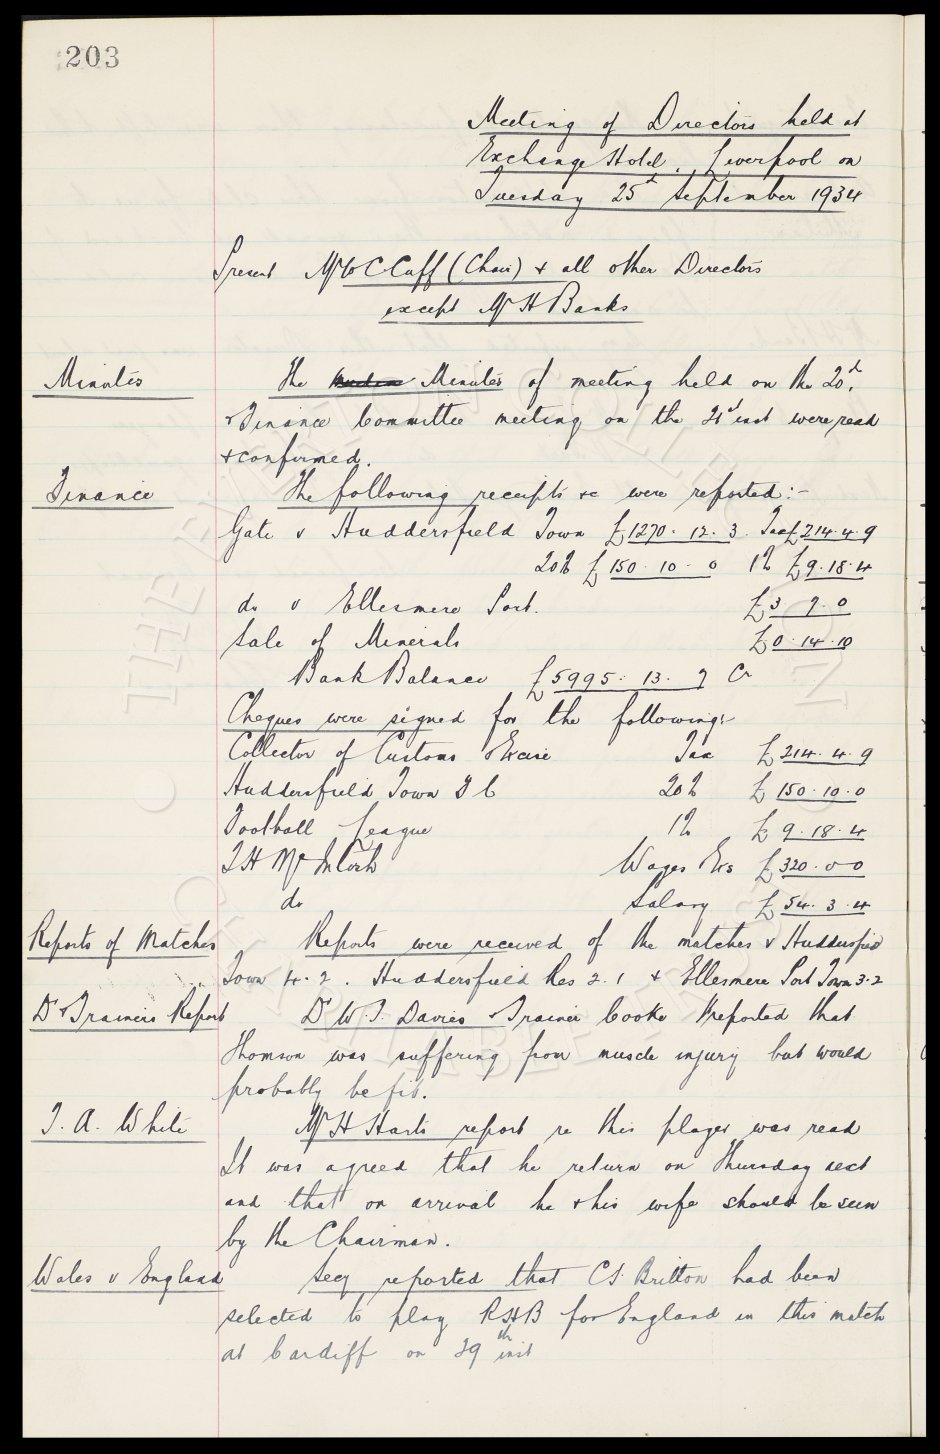 203
Meeting of Directors held at
Exchange Hotel, Liverpool on
Tuesday 25th September 1934
Present Mr W C Cuff (Chair) & all other Directors
except Mr H Banks
Minutes The Minutes of meeting held on the 20th,
& Finance Committee meeting on the 21st inst were read
& confirmed.
Finance The following receipts &c were reported:-
Gate v Huddersfield Town £1270. 12. 3. Tax £214. 4. 9
20% £150. 10. 0 1% £9. 18. 4
do v Ellesmere Port. £3 9. 0
Sale of Minerals £0. 14. 10
Bank Balance £5995. 13. 7 Cr
Cheques were signed for the following:-
Collector of Customs & Excise Tax £214. 4. 9
Huddersfield Town F C 20% £150. 10. 0
Football League 1% £9. 18. 4
T H McIntosh Wages &cs £320. 0 0
do Salary £54. 3. 4
Reports of Matches Reports were received of the matches v Huddersfield
Town 4.2. Huddersfield Res 2.1 & Ellesmere Port Town 3.2
Dr & Trainers Report Dr W. T. Davies & Trainer Cooke reported that
Thomson was suffering from muscle injury but would
probably be fit.
T. A. White Mr H Harts report re this player was read
It was agreed that he return on Thursday next
and that on arrival he & his wife should be seen
by the Chairman.
Wales v England Secy reported that C S Britton had been
selected to play R.H.B for England in this match
at Cardiff on 29th inst